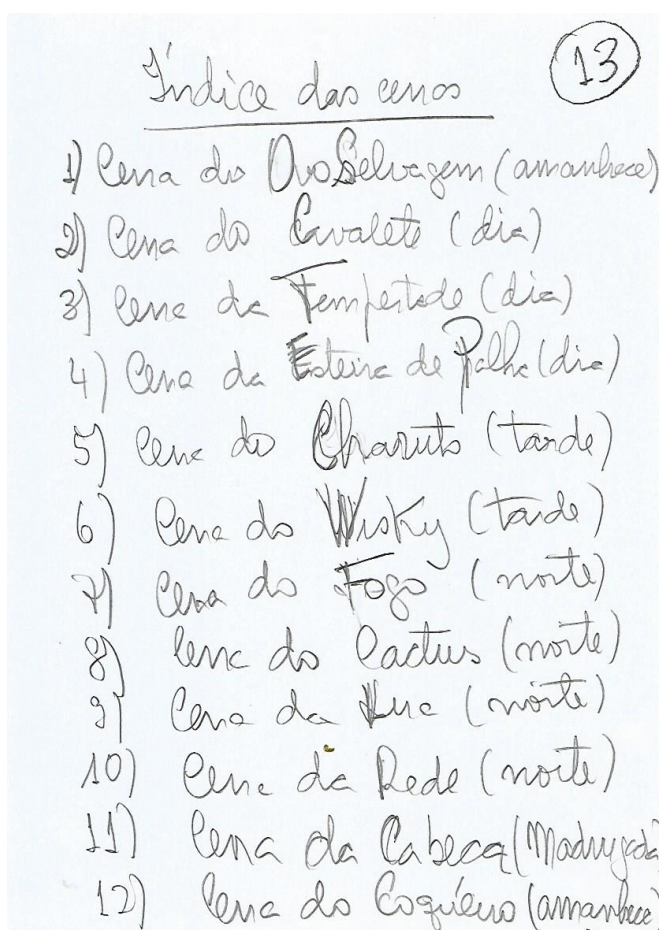 13
Índice das cenas
1) Cena do Ovo Selvagem (amanhece)
2) Cena do Cavalete (dia)
3) Cena da Tempestade (dia)
4) Cena da Esteira de Palha (dia)
5) Cena do Charuto (tarde)
6) Cena do Wisky (tarde)
7) Cena do Fogo (noite)
8) Cena do Cactus (noite)
9) Cena da Lua (noite)
10) Cena da Rede (noite)
11) Cena da Cabeça (Madrugada
12) Cena do Coqueiro (amanhece